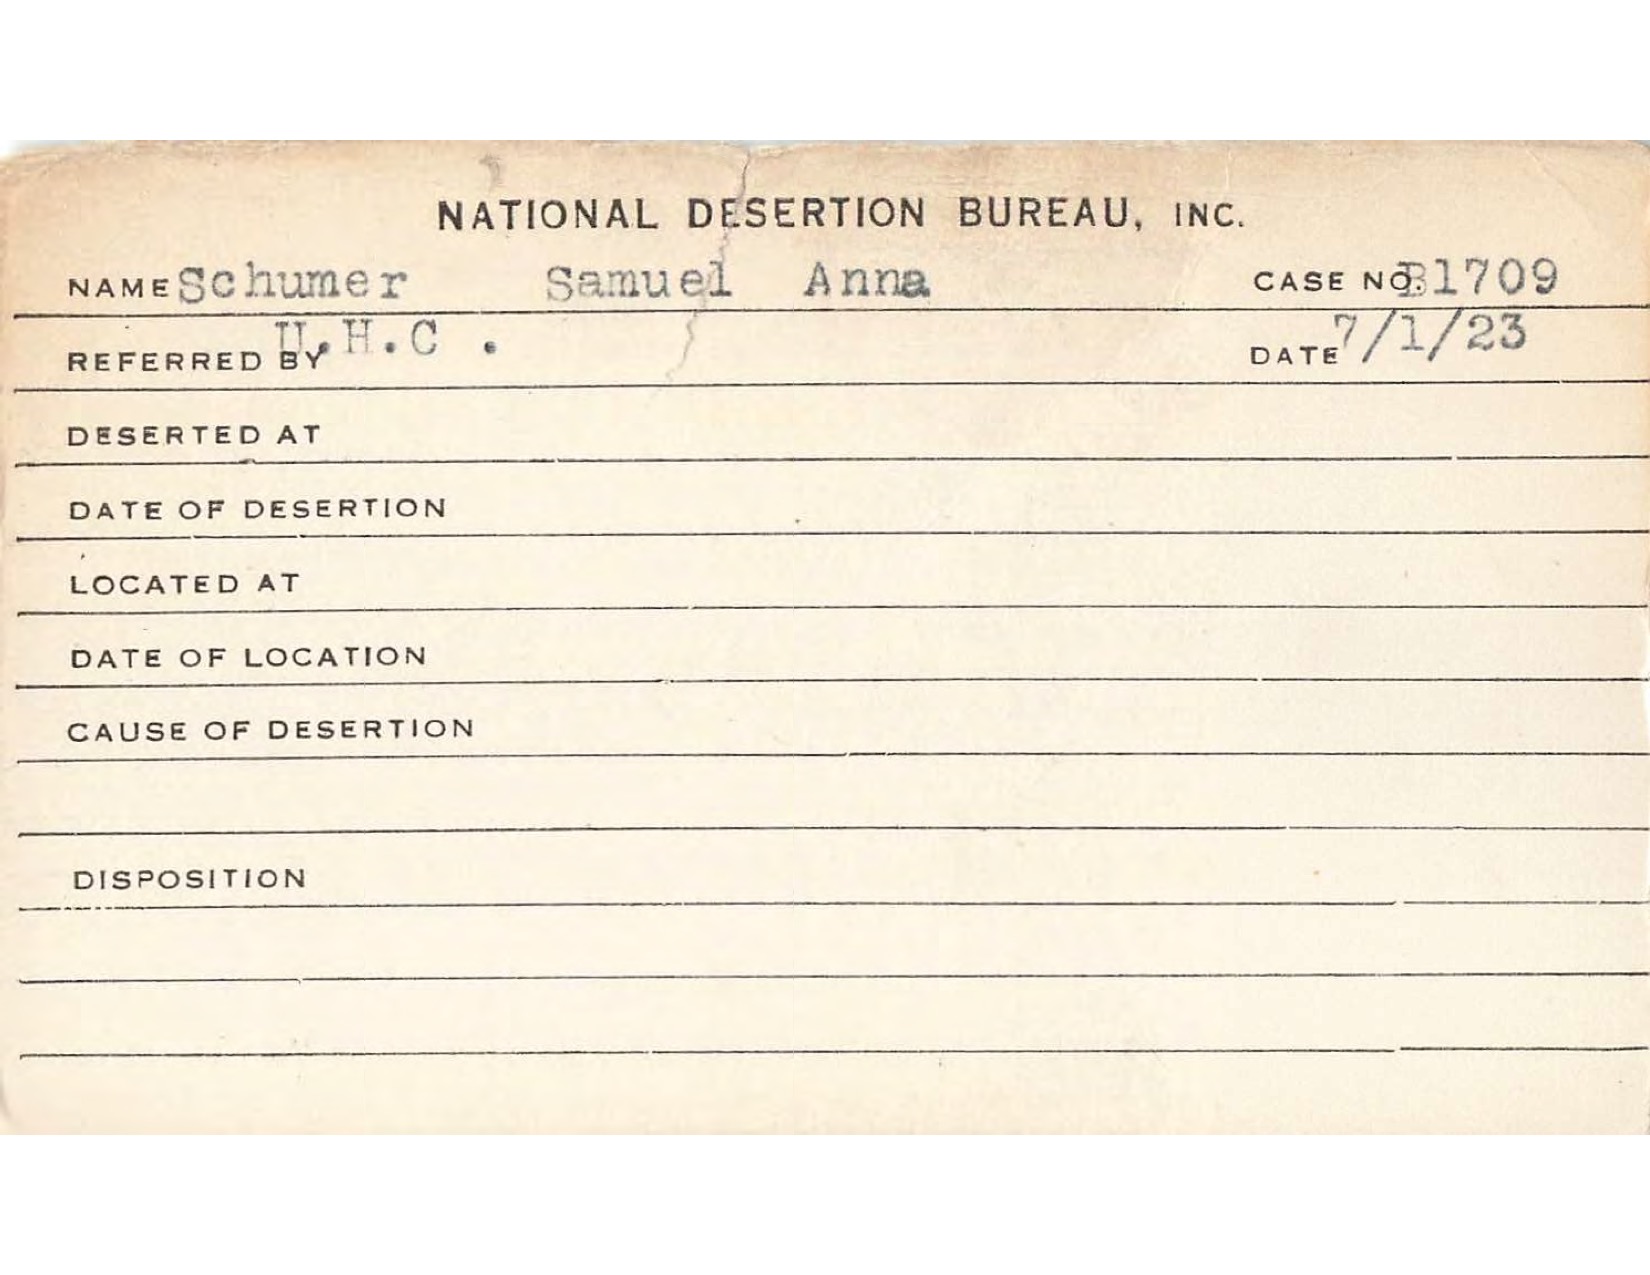 NATIONAL DESERTION BUREAU, INC.
NAME Schumer Samuel Anna CASE NO. B1709
REFERRED BY U.H.C. DATE 7/1/23
DESERTED AT
DATE OF DESERTION
LOCATED AT
DATE OF LOCATION
CAUSE OF DESERTION
DISPOSITION